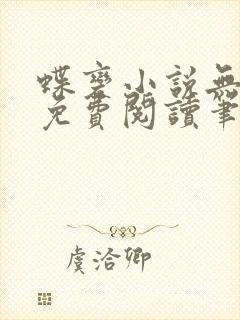 蝶变小说無
免費閱讀筆
虞洽卿